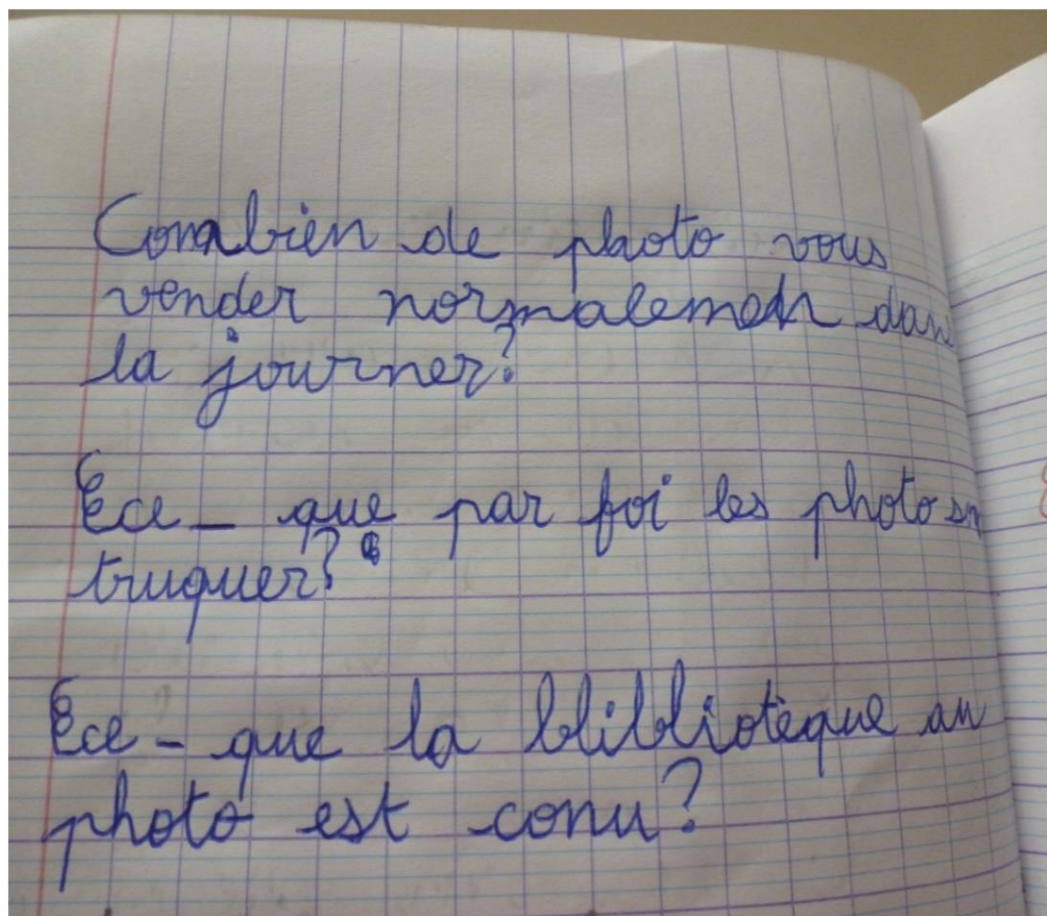 Combien de photo vous
vender normalement dans
la journer?
Ece - que par foi les photo sn
truquer?
Ece - que la bliblioteque an
photo est conu?